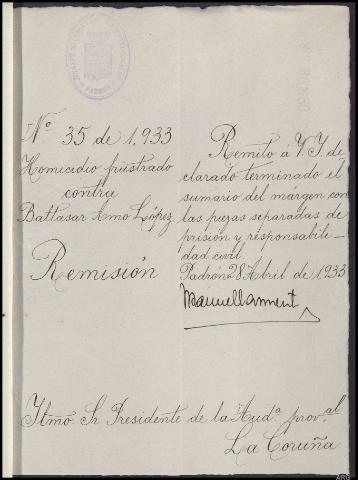 PADRON
Nº 35 de 1.933
Homicidio frustrado
contra
Baltasar Amo López
Remisión
Remito á V. I. de
clarado terminado el
sumario del márgen con
las pezas separadas de
prisión y responsabili-
dad civil.
Padrón 28 Abril de 1.933
Iltmo. Sr Presidente de la Audª provªl
La Coruña